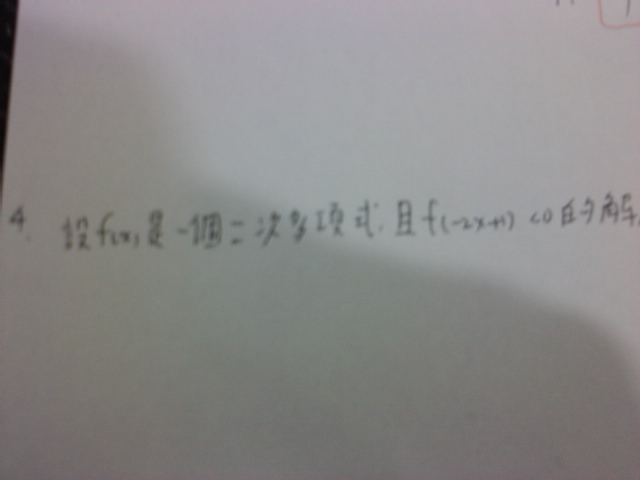 4. 設f(x)是一個二次多項式,且f(-2x+1)<0的解